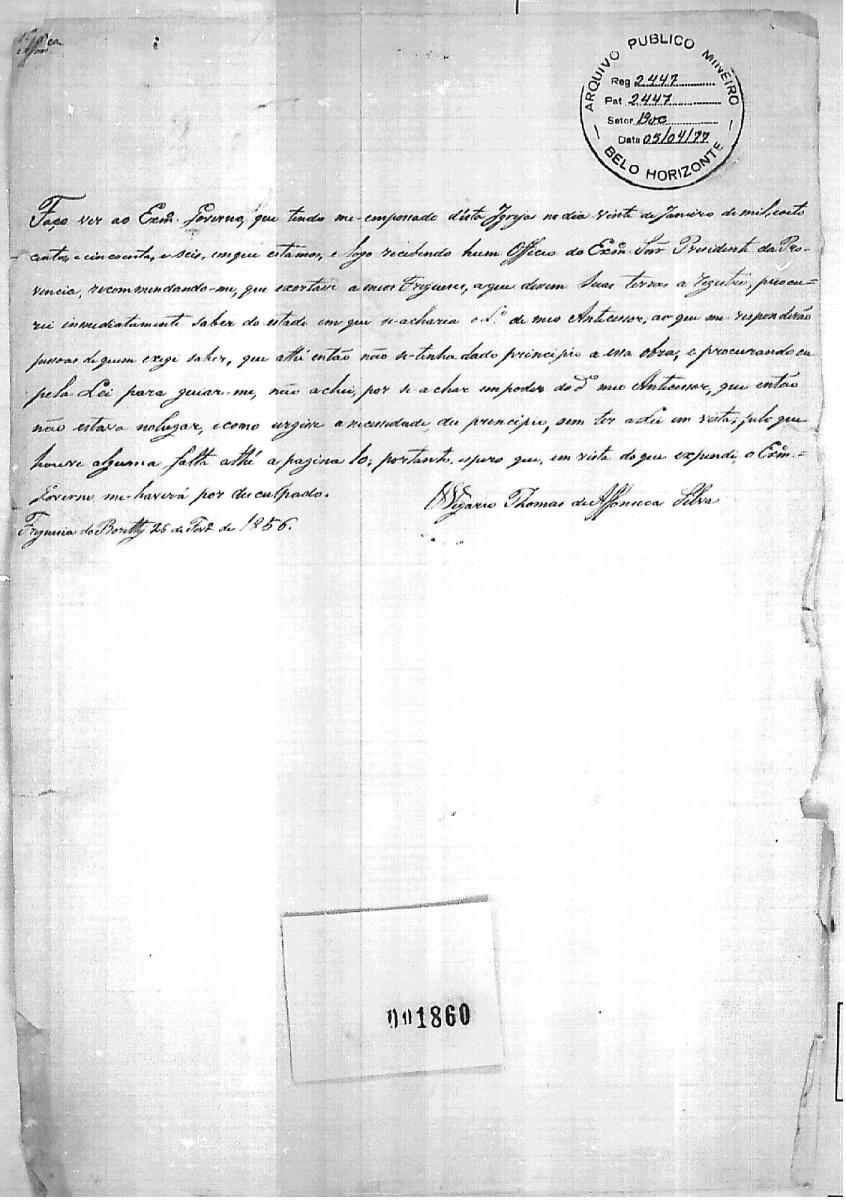 ARQUIVO PUBLICO MINEIRO
Reg 2447
Pat 2447
Setor Doc
Data 05/04/77
BELO HORIZONTE
Faço ver ao Exm. Governo, que tendo me-empossado d'esta Igreja no dia vinte de Janeiro de mil, e oito
centos, e cincoenta, e seis, em que estamos, e logo recebendo hum Officio do Exm. Snr. Presidente da Pro-
vencia, recommendando-me, que exortasse a meos Freguezes, a que dessem suas terras a Registro, procu-
rei immediatamente saber do estado em que se-acharia o L.º de meo Antecessor, ao que me-responderão
pessoas de quem exegi saber, que athé então não se-tinha dado principio a essa obra; e procurando eu
pela Lei para guiar-me, não achei, por se achar em poder do d.º meo Antecessor, que então
não estava no lugar, e como urgisse a necessidade, dei principio, sem ter a Lei em vista; julgo que
houve alguma falta athé a pagina 10; portanto, espero que, em vista do que expendi, o Exm.
Governo me-haverá por desculpado.
Vigario Thomas de Affonseca Silva
Freguesia do 26 de Fevr. de 1856.
001860